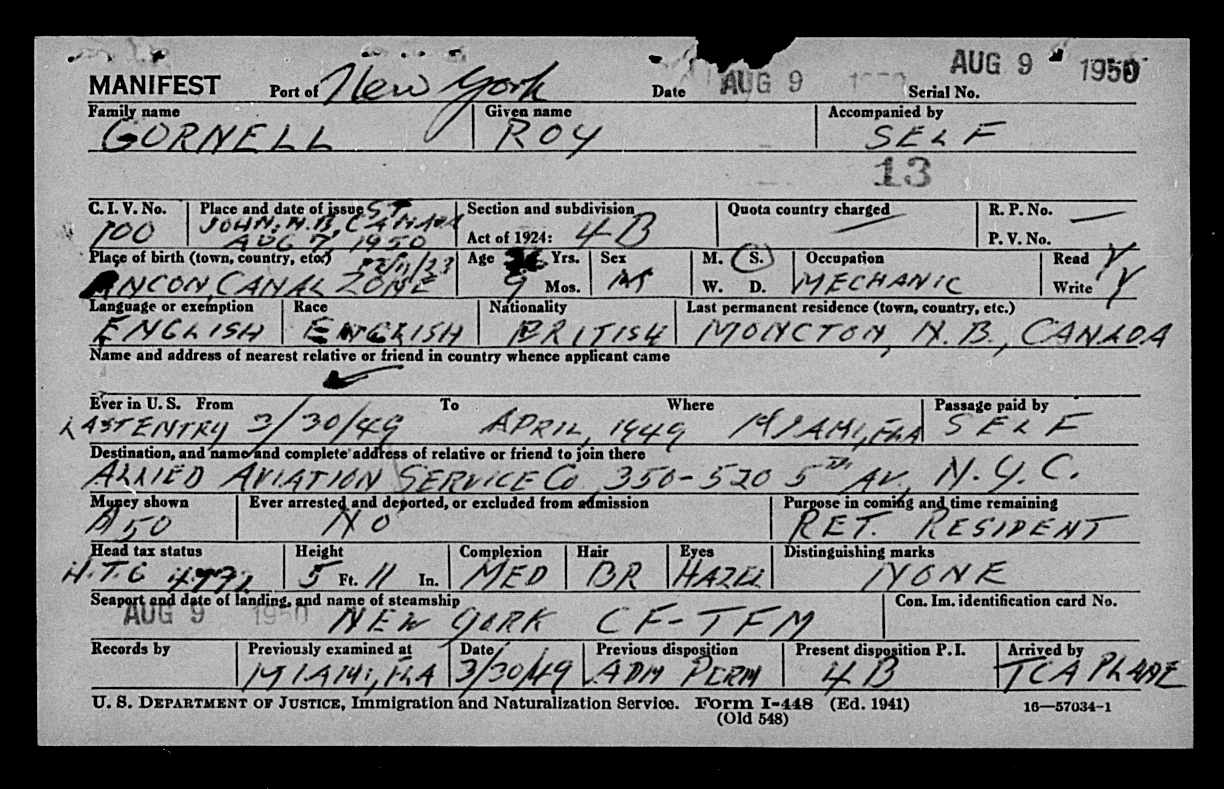 AUG 9 1950
MANIFEST Port of New York Date AUG 9 Serial No.
Family name Given name Accompanied by
GORNELL ROY SELF
13
C. I. V. No. Place and date of issue ST Section and subdivision Quota country charged R. P. No. —
100 JOHN, N.B, CANADA Act of 1924: 4B P. V. No.
AUG 7 1950
Place of birth (town, country, etc.) Age Yrs. Sex M. S. Occupation Read Y
ANCON CANAL ZONE 9 Mos. M W. D. MECHANIC Write Y
Language or exemption Race Nationality Last permanent residence (town, country, etc.)
ENGLISH ENGLISH BRITISH MONCTON, N.B., CANADA
Name and address of nearest relative or friend in country whence applicant came
Ever in U. S. From To Where Passage paid by
LAST ENTRY 3/30/49 APRIL, 1949 MIAMI, FLA SELF
Destination, and name and complete address of relative or friend to join there
ALLIED AVIATION SERVICE Co 350-520 5TH AV., N.Y.C.
Money shown Ever arrested and deported, or excluded from admission Purpose in coming and time remaining
NO RET. RESIDENT
Head tax status Height Complexion Hair Eyes Distinguishing marks
H.T.G 5 Ft. 11 In. MED BR HAZEL NONE
Seaport and date of landing, and name of steamship Con. Im. identification card No.
AUG 9 1950 NEW YORK CF-TFM
Records by Previously examined at Date Previous disposition Present disposition P. I. Arrived by
MIAMI, FLA 3/30/49 ADM PERM 4B TCA PLANE
U. S. DEPARTMENT OF JUSTICE, Immigration and Naturalization Service. Form I-448 (Ed. 1941) 16—57034-1
(Old 548)